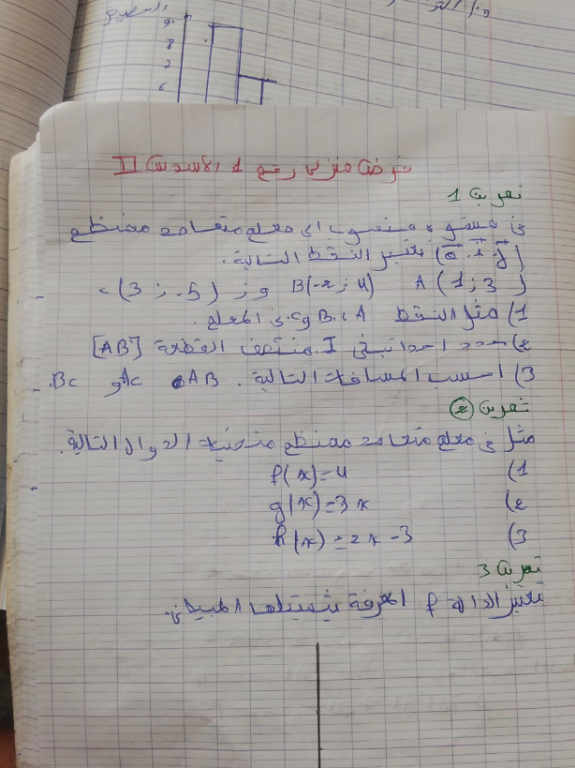 9
8
7
6
فرض منزلي رقم 1 الأسدس II
تمرين 1
في مستوى منسوب الى معلم متعامد ممنظم
(o, i, j) نعتبر النقط التالية.
A (1 ; 3) B(-2 ; 4) و C (3 ; -5)
1) مثل النقط A، B و C في المعلم.
2) حدد احداثيتي I منتصف القطعة [AB]
3) احسب المسافات التالية. AB و AC و BC.
تمرين 2
مثل في معلم متعامد ممنظم منحنيات الدوال التالية.
1) f(x)=4
2) g(x)=3x
3) h(x)=2x-3
تمرين 3
نعتبر الدالة f المعرفة بتمثيلها المبياني.